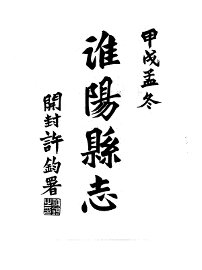 甲戌孟冬
淮陽縣志
開封許鈞署